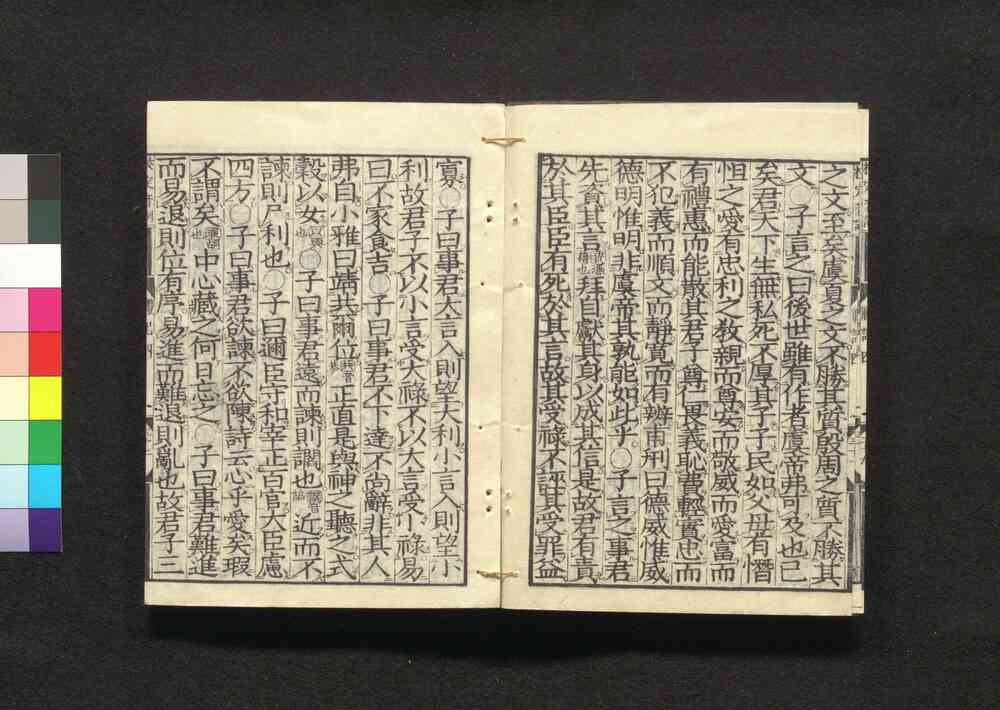 之文至矣虞夏之文不勝其質殷周之質不勝其
文○子言之曰後世雖有作者虞帝弗可及也已
矣君天下生無私死不厚其子子民如父母有憯
怛之愛有忠利之教親而尊安而敬威而愛富而
有禮惠而能散其君子尊仁畏義恥費輕實忠而
不犯義而順文而靜寬而有辨甫刑曰德威惟威
德明惟明非虞帝其孰能如此乎○子言之事君
先資其言拜自獻其身以成其信是故君有責
於其臣臣有死於其言故其受祿不誣其受罪益
寡○子曰事君大言入則望大利小言入則望小
利故君子不以小言受大祿不以大言受小祿易
曰不家食吉○子曰事君不下達不尚辭非其人
弗自小雅曰靖共爾位共音恭正直是與神之聽之式
穀以女○子曰事君遠而諫則讇也近而不
諫則尸利也○子曰邇臣守和宰正百官大臣慮
四方○子曰事君欲諫不欲陳詩云心乎愛矣瑕
不謂矣瑕胡也中心藏之何日忘之○子曰事君難進
而易退則位有序易進而難退則亂也故君子三